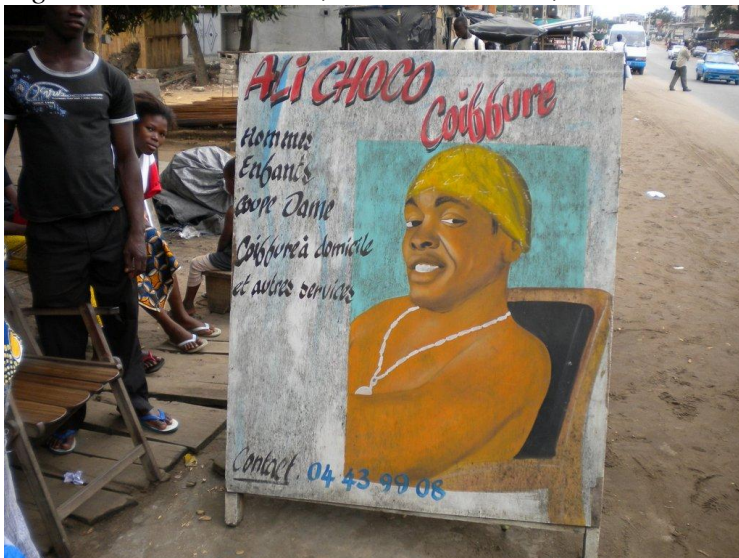 ALi CHOCO
Coiffure
Hommes
Enfants
Coupe Dame
Coiffure à domicile
et autres services
Contact. 04 43 99 08